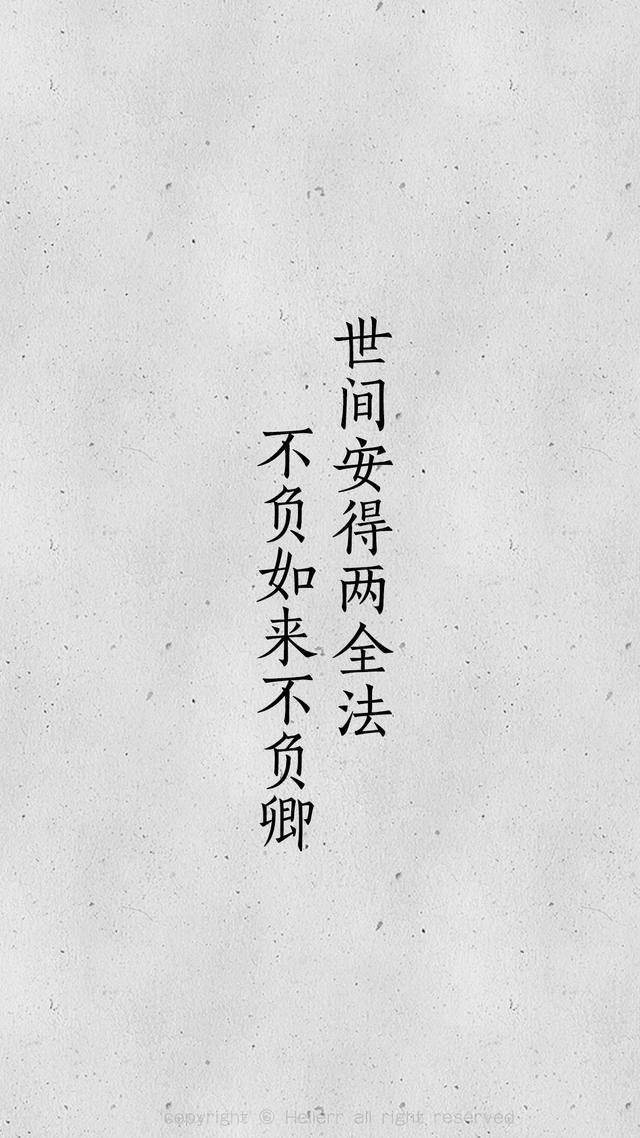 世间安得两全法
不负如来不负卿
copyright © Hellerr all right reserved